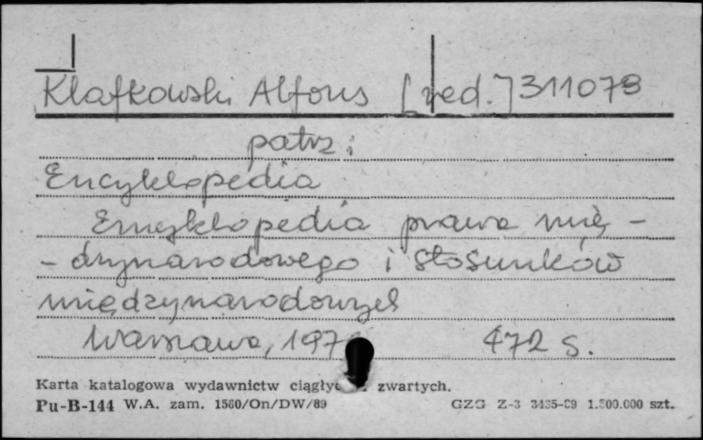 Klafkowski Alfons [red.] 311078
patrz:
Encyklopedia
Encyklopedia prawa mię-
-dzynarodowego i stosunków
międzynarodowych
Warszawa, 197 472 s.
Karta katalogowa wydawnictw zwartych.
Pu-B-144 W.A. zam. 1560/On/DW/89 GZG Z-3 3435-89 1.500.000 szt.